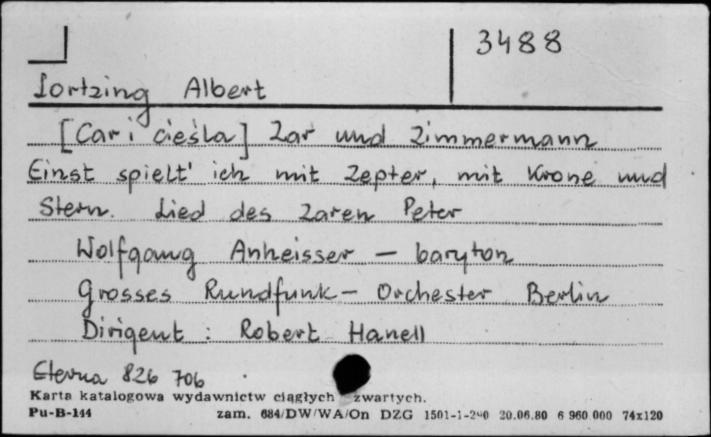 3488
Lortzing Albert
[Car i cieśla] Zar und Zimmermann
Einst spielt' ich mit Zepter, mit Krone und
Stern. Lied des Zaren Peter
Wolfgang Anheisser – baryton
Grosses Rundfunk – Orchester Berlin
Dirigent : Robert Hanell
Eterna 826 706
Karta katalogowa wydawnictw ciągłych zwartych.
Pu-B-144 zam. 684/DW/WA/On DZG 1501-1-240 20.06.80 6 960 000 74x120